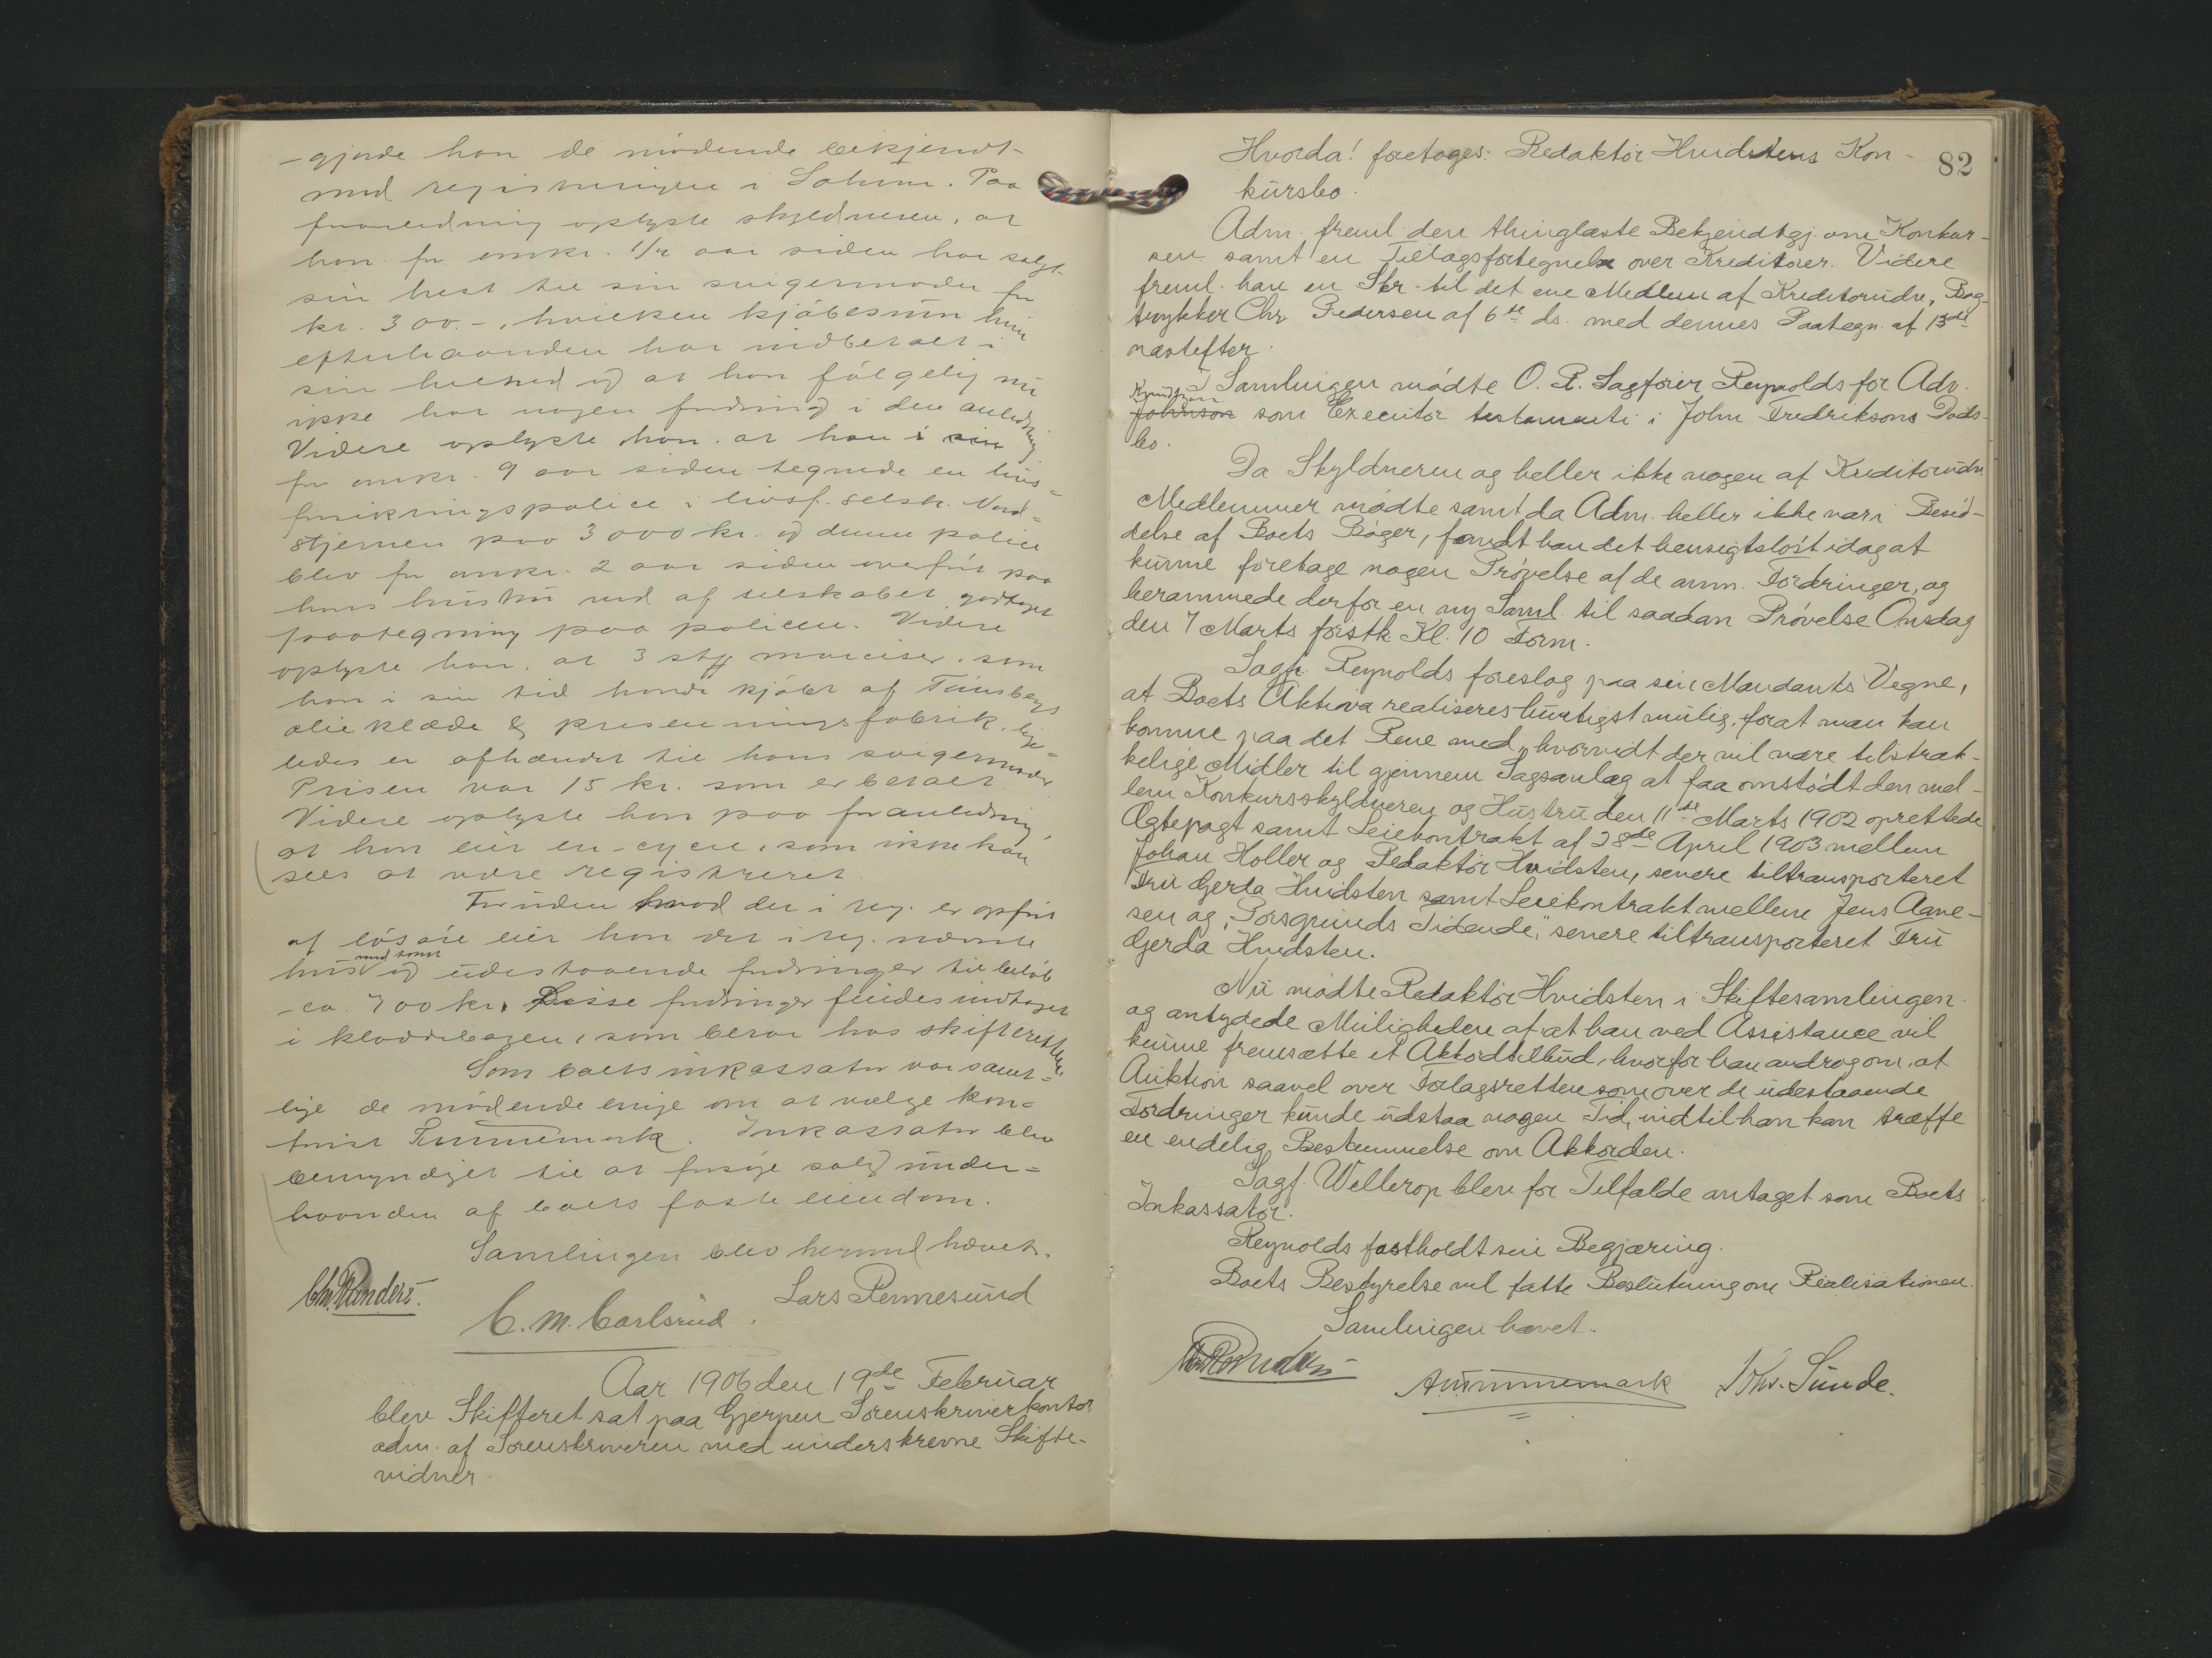 - gjorde han de mødende bekjendt
med registreringen i Solum. Paa
foranledning oplyste skyldneren, at
han for omkr. 1/2 aar siden har solgt
sin hest til sin svigermoder for
kr. 300.-, hvilken kjøbesum hun
efterhaanden har indbetalt i
sin helhed og at han følgelig nu
ikke har nogen fordring i den anledning
Videre oplyste han. at han i sin
for omkr. 9 aar siden tegnede en livs=
forsikringspolice i livsf. selsk. Nord=
stjernen paa 3000 kr. og denne police
blev for omkr. 2 aar siden overført paa
hans hustru ved af selskabet godtaget
paategning paa policen. Videre
oplyste han. at 3 stkr markiser. som
han i sin tid havde kjøbt af Tønsbergs
olieklæde & presenningsfabrik. lige=
ledes er afhændet til hans svigermoder
Prisen var 15 kr. som er betalt
Videre oplyste han paa foranledning,
at han eier en cycle, som ikke kan
sees at være registreret.
Foruden hvad der i reg. er opført
af løsøre eier han det i reg. nævnte
hus med tomt og udestaaende fordringer til beløb
ca. 700 kr. Disse fordringer findes indtaget
i kladdebogen, som beror hos skifteretten.
Som boets inkassator var samt=
lige de mødende enige om at vælge kon=
torist Tummemark. Inkassator blev
bemyndiget til at forsøge salg under=
haanden af boets faste eiendom.
Samlingen blev hermed hævet.
Chr. Randers.
C. M. Carlsrud.
Lars Rennesund
Aar 1906 den 19de Februar
blev Skifteret sat paa Gjerpen Sorenskriverkontor
adm. af Sorenskriveren med underskrevne Skifte-
vidner.
82
Hvorda! foretoges: Redaktør Hvidstens Kon-
kursbo.
Adm. freml. den thinglæste Bekjendtgj. om Konkur-
sen samt en Tillægsfortegnelse over Kreditorer. Videre
freml. han en Skr. til det ene Medlem af Kreditorudv., Bog-
trykker Chr. Pedersen af 6te ds. med dennes Paategn. af 13de
næstefter.
I Samlingen mødte O. R. Sagfører Reynolds for Adv.
Johnson som Executor testamenti i John Fredriksons Døds-
bo.
Da Skyldneren og heller ikke nogen af Kreditorudv.
Medlemmer mødte samt da Adm. heller ikke var i Besid-
delse af Boets Bøger, fandt han det hensigtsløst idag at
kunne foretage nogen Prøvelse af de anm. Fordringer, og
berammede derfor en ny Saml. til saadan Prøvelse Onsdag
den 7 Marts førstk. Kl. 10 Form.
Sagf. Reynolds foreslog paa sin Mandants Vegne,
at Boets Aktiva realiseres hurtigst mulig, forat man kan
komme paa det Rene med, hvorvidt der vil være tilstræk-
kelige Midler til gjennem Sagsanlæg at faa omstødt den mel-
lem Konkursskyldneren og Hustru den 11te Marts 1902 oprettede
Ægtepagt samt Leiekontrakt af 28de April 1903 mellem
Johan Holler og Redaktør Hvidsten, senere tiltransporteret
Fru Gerda Hvidsten samt Leiekontrakt mellem Jens Aane-
sen og "Porsgrunds Tidende", senere tiltransporteret Fru
Gerda Hvidsten.
Nu mødte Redaktør Hvidsten i Skiftesamlingen
og antydede Muligheden af, at han ved Assistance vil
kunne fremsætte et Akkordtilbud, hvorfor han androg om, at
Auktion saavel over Forlagsretten som over de udestaaende
Fordringer kunde udstaa nogen Tid, indtil han kan træffe
en endelig Bestemmelse om Akkorden.
Sagf. Wellerop blev for Tilfælde antaget som Boets
Inkassator.
Reynolds fastholdt sin Begjæring.
Boets Bestyrelse vil fatte Beslutning om Realisationen.
Samlingen hævet.
Chr. Randers
A Tummemark
Johs. Sunde.